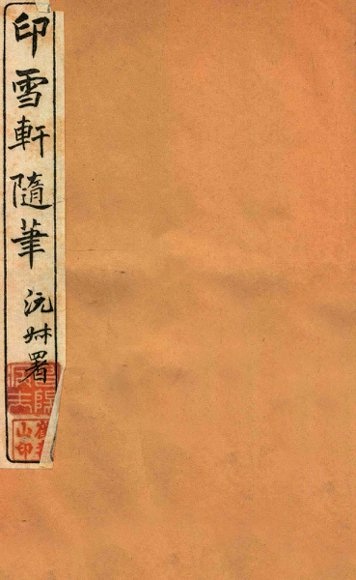 印雪軒隨筆
沅尗署
山印